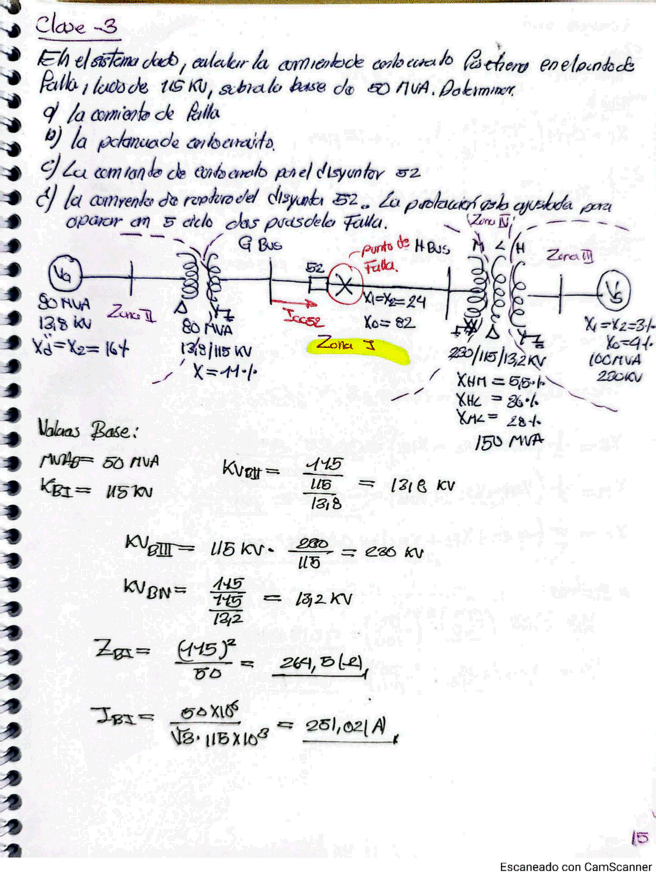 Clase -3
En el sistema dado, calcular la corriente de cortocircuito en el punto de
falla, lado de 115 KV, sobre la base de 50 MVA. Determinar
a) la corriente de falla
b) la potencia de cortocircuito.
c) La corriente de cortocircuito por el disyuntor 52
d) la corriente de ruptura del disyuntor 52.. La protección esta ajustada para
operar en 5 ciclo despues de la Falla.
Zona IV
G Bus
punto de Falla.
H Bus
M L H
Zona III
VG
52
Icc52
X1=X2=24
X0=82
Zona II
Zona I
80 MVA
13,8 KV
Xd"=X2=16%
Δ
80 MVA
13,8/115 KV
X=11%
Δ
230/115/13,2 KV
XHM = 5,5%
XHL = 36%
XML = 28%
150 MVA
X1=X2=3%
X0=4%
100 MVA
230KV
Valores Base:
MVAB = 50 MVA
KBI = 115 KV
KVBII = 115 / (115/13,8) = 13,8 KV
KVBIII = 115 KV · 230/115 = 230 KV
KVBIV = 115 / (115/13,2) = 13,2 KV
ZBI = (115)² / 50 = 264,5 (Ω)
IBI = 50 X10⁶ / √3 · 115 X10³ = 251,02 (A)
15
Escaneado con CamScanner